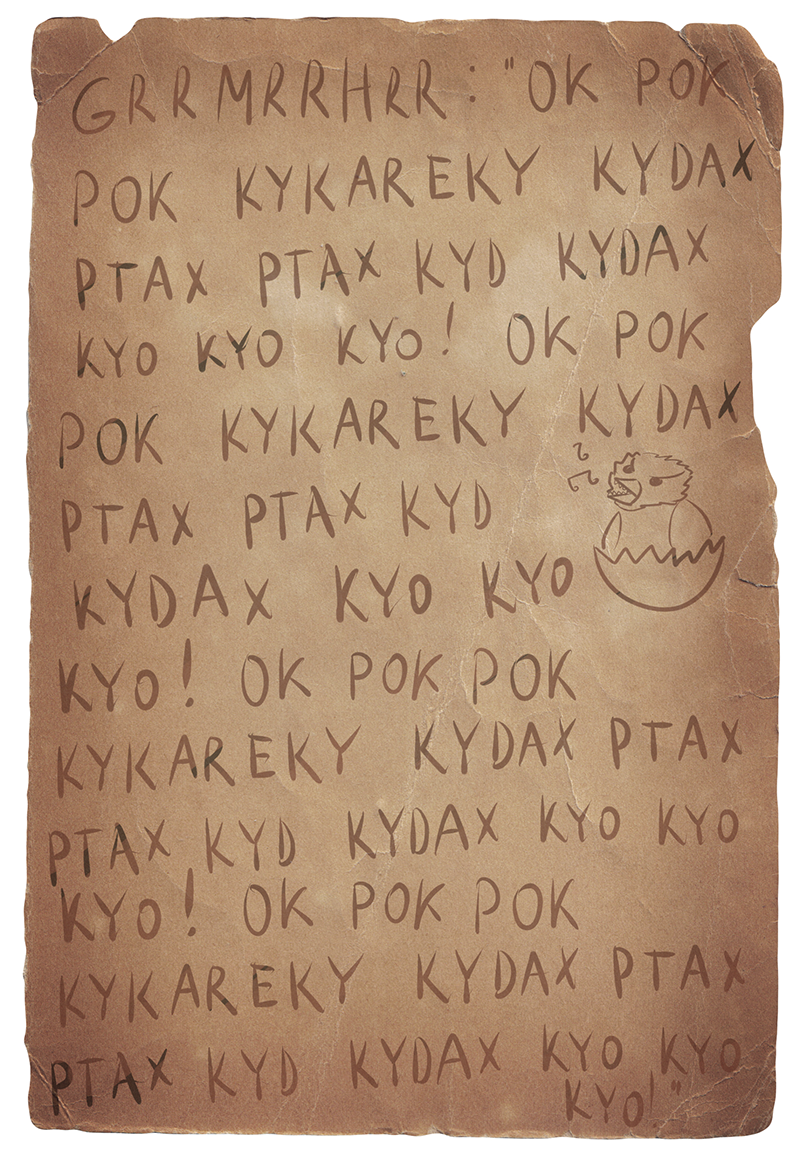 GRRMRRHRR: "OK POK
POK KYKAREKY KYDAX
PTAX PTAX KYD KYDAX
KYO KYO KYO! OK POK
POK KYKAREKY KYDAX
PTAX PTAX KYD
KYDAX KYO KYO
KYO! OK POK POK
KYKAREKY KYDAX PTAX
PTAX KYD KYDAX KYO KYO
KYO! OK POK POK
KYKAREKY KYDAX PTAX
PTAX KYD KYDAX KYO KYO
KYO!"